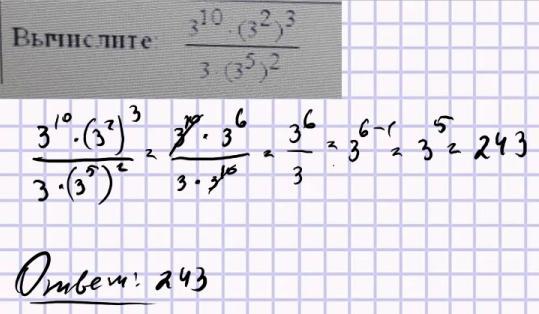 Вычислите: \frac{3^{10} \cdot (3^2)^3}{3 \cdot (3^5)^2}
\frac{3^{10} \cdot (3^2)^3}{3 \cdot (3^5)^2} = \frac{3^{10} \cdot 3^6}{3 \cdot 3^{10}} = \frac{3^6}{3} = 3^{6-1} = 3^5 = 243
Ответ: 243